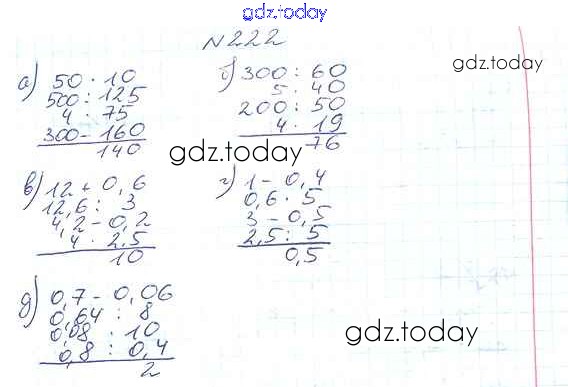 gdz.today
N222
gdz.today
а) 50 · 10
500 : 125
4 · 75
300 - 160
140
б) 300 : 60
5 · 40
200 : 50
4 · 19
76
gdz.today
в) 12 + 0,6
12,6 : 3
4,2 - 0,2
4 · 2,5
10
г) 1 - 0,4
0,6 · 5
3 - 0,5
2,5 : 5
0,5
д) 0,7 - 0,06
0,64 : 8
0,08 · 10
0,8 : 0,4
2
gdz.today